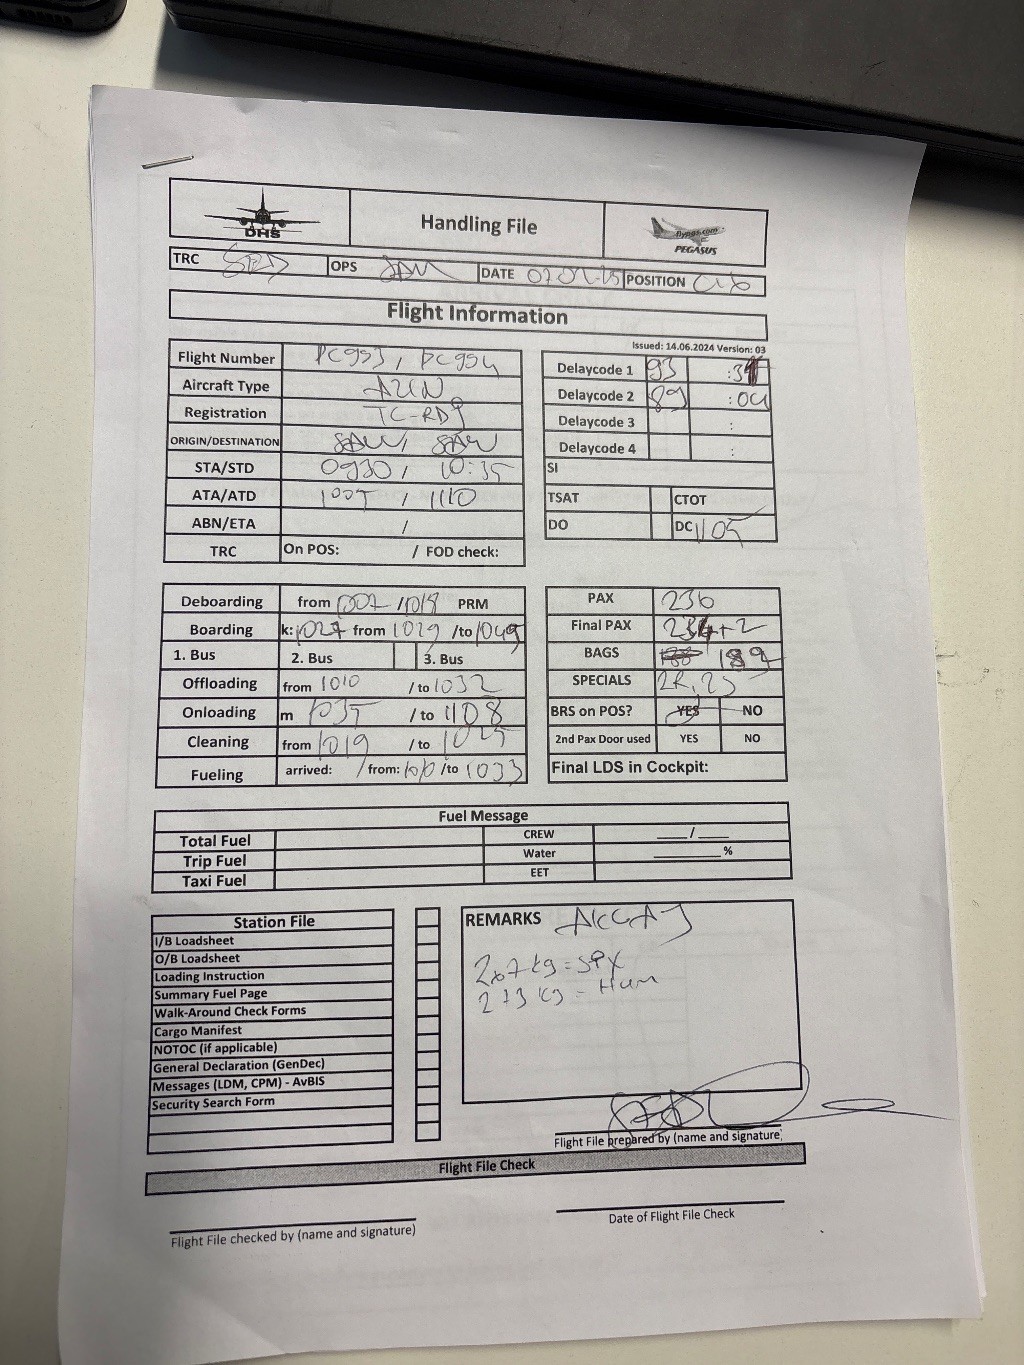 DHS
Handling File
flypgs.com
PEGASUS
TRC OPS SAW DATE POSITION
Flight Information
Issued: 14.06.2024 Version: 03
Flight Number PC993, PC994
Aircraft Type A21N
Registration TC-RDJ
ORIGIN/DESTINATION SAW, SAW
STA/STD 0930 / 10:35
ATA/ATD / 1110
ABN/ETA /
TRC On POS: / FOD check:
Delaycode 1 93
Delaycode 2 89 :04
Delaycode 3 :
Delaycode 4 :
SI
TSAT CTOT
DO DC 1105
Deboarding from 1007 /1018 PRM
Boarding k: 1027 from 1029 /to 1049
1. Bus 2. Bus 3. Bus
Offloading from 1010 / to 1032
Onloading m 1035 / to 1108
Cleaning from 1019 / to 1025
Fueling arrived: / from: 1010 /to 1033
PAX 236
Final PAX 234+2
BAGS 189
SPECIALS 2R, 2S
BRS on POS? YES NO
2nd Pax Door used YES NO
Final LDS in Cockpit:
Fuel Message
Total Fuel CREW ___/___
Trip Fuel Water ______%
Taxi Fuel EET
Station File
I/B Loadsheet
O/B Loadsheet
Loading Instruction
Summary Fuel Page
Walk-Around Check Forms
Cargo Manifest
NOTOC (if applicable)
General Declaration (GenDec)
Messages (LDM, CPM) - AvBIS
Security Search Form
REMARKS AKCAJ
267 kg = SPX
273 kg = Hum
Flight File prepared by (name and signature)
Flight File Check
Flight File checked by (name and signature)
Date of Flight File Check